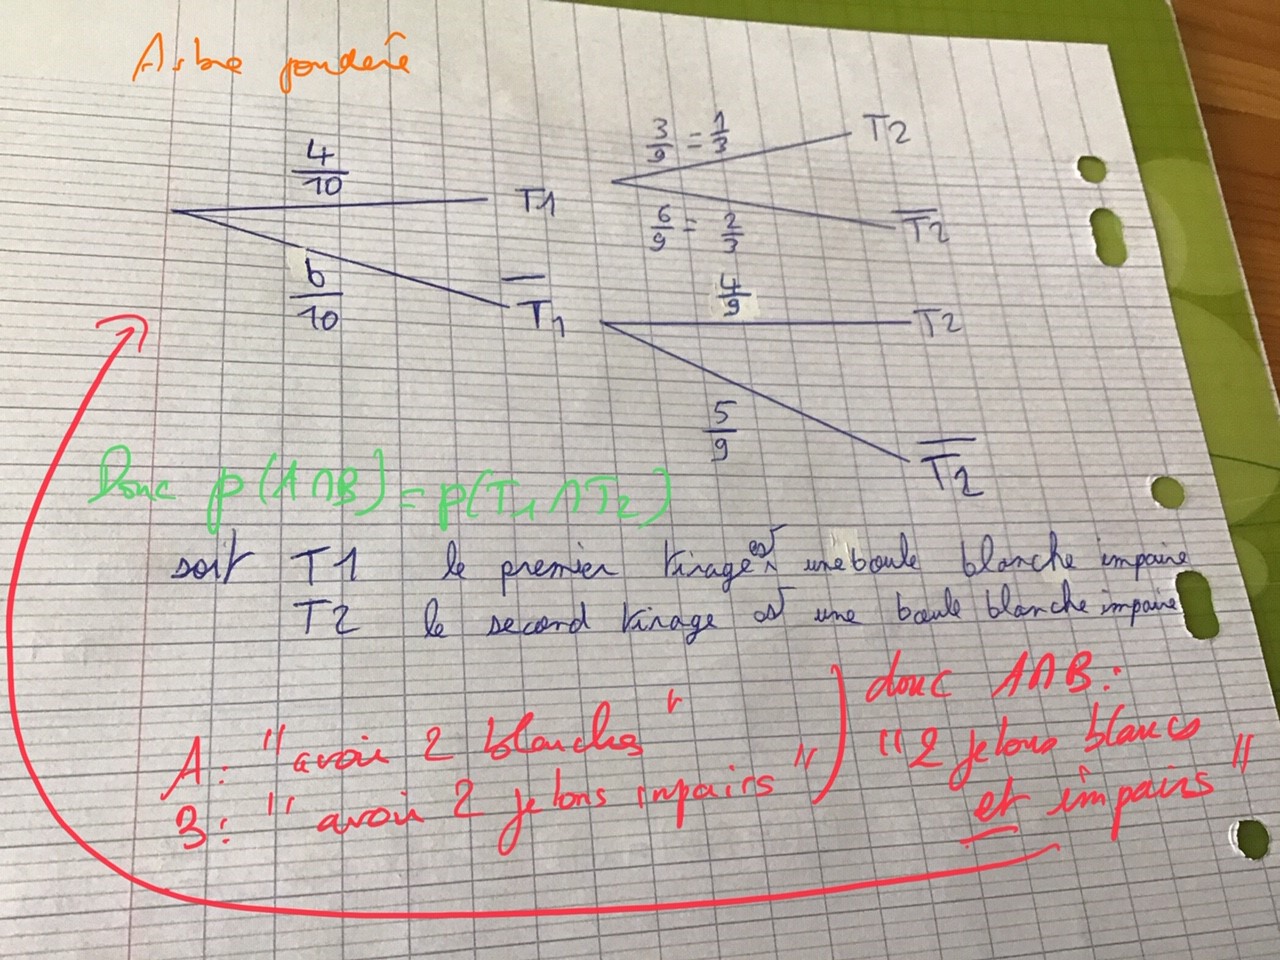 Arbre pondéré
4/10 T1
6/10 T̅1
3/9 = 1/3 T2
6/9 = 2/3 T̅2
4/9 T2
5/9 T̅2
Donc p(A∩B) = p(T1∩T2)
soit T1 le premier tirage est une boule blanche impaire
T2 le second tirage est une boule blanche impaire
A: "avoir 2 blanches"
B: "avoir 2 jetons impairs"
donc A∩B:
"2 jetons blancs
et impairs"